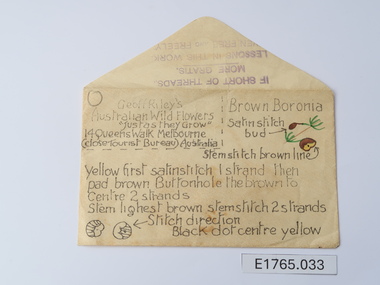 IF SHORT OF THREADS
MORE GRATIS.
LESSONS
WORK
FREELY
Geoff Riley's
Australian Wild Flowers
"Just as they Grow"
14 Queens Walk Melbourne
(close Tourist Bureau) Australia
Brown Boronia
Satin stitch
bud
Stem stitch brown line
Yellow first satin stitch 1 strand then
pad brown Buttonhole the brown to
Centre 2 strands
Stem lighest brown stem stitch 2 strands
Stitch direction
Black dot centre yellow
E1765.033